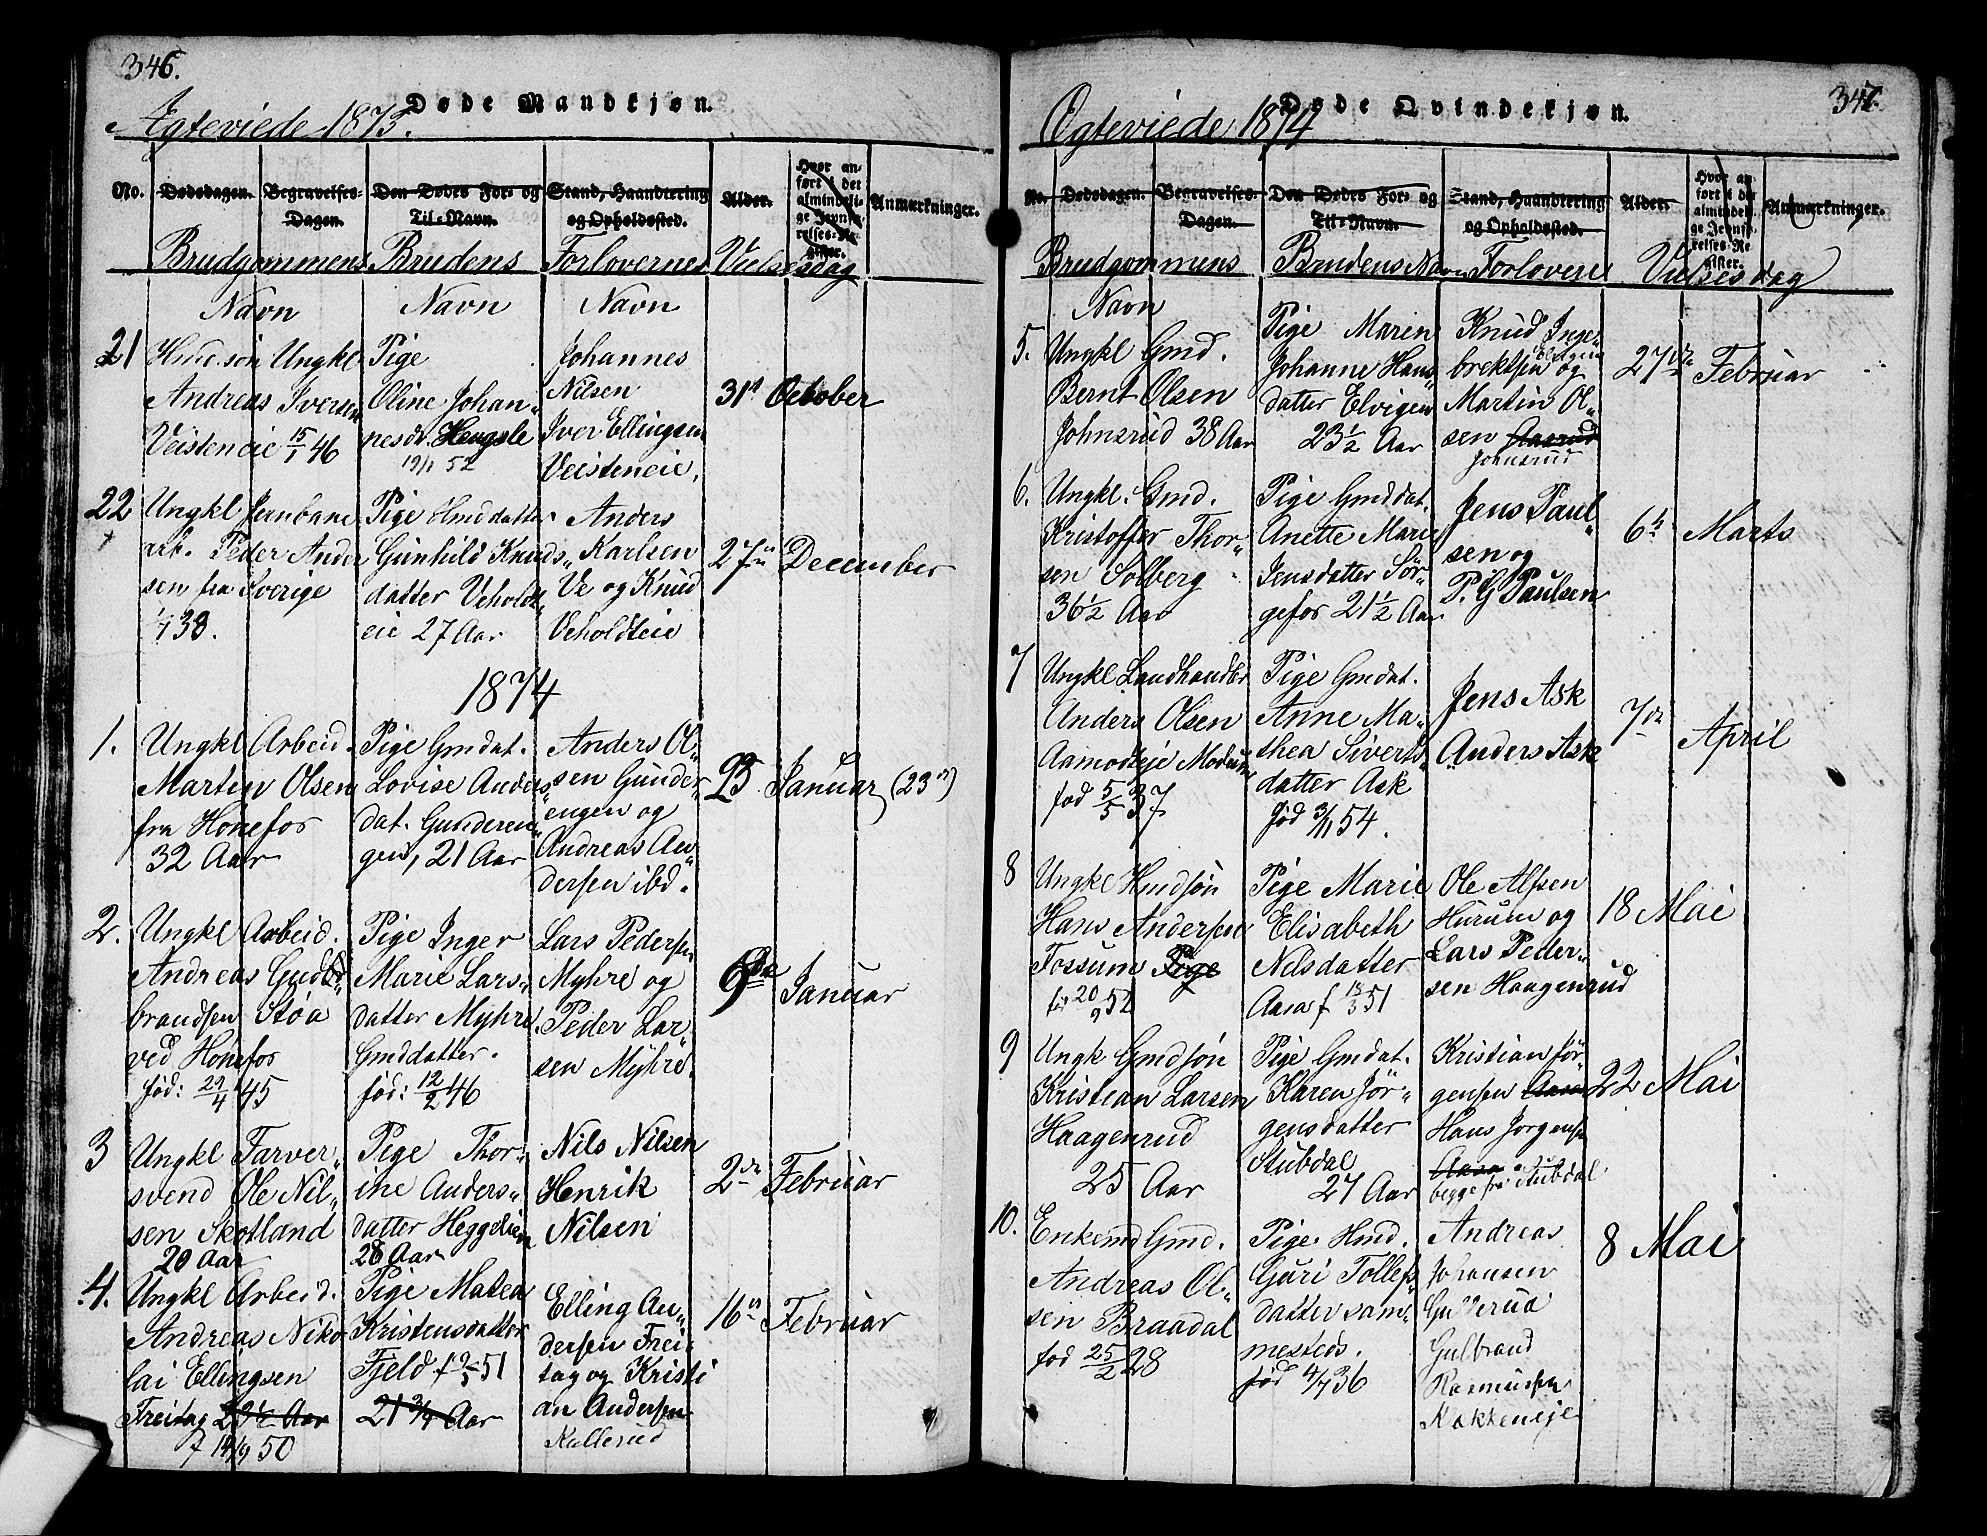 346.
Døde Mandkjøn.
Ægteviede 1873.
No. Dødsdagen. Begravelses-Dagen. Den Dødes For- og Til-Navn. Stand, Haandtering og Opholdssted. Alder. Hvor anført i det almindelige Jevnførelses-Register. Anmærkninger.
Brudgommens Navn
Brudens Navn
Forlovernes Navn
Vielsesdag
21
Hmd.søn Ungkl
Andreas Iversen
Veisteneie 15/1 46
Pige
Oline Johan„
nesdr. Hengsle
19/1 52
Johannes
Nilsen
Iver Ellingsen
Veisteneie.
31te October
22
Ungkl Jernbane
arb. Peder Ander
sen fra Sverige
1/7 38.
Pige Hmddatter
Gunhild Knuds„
datter Veholdt„
eie 27 Aar
Anders
Karlsen
Ve og Knud
Veholdteie
27de December
1874
1.
Ungkl Arbeid.
Martin Olsen
fra Hønefos
32 Aar
Pige Gmdat.
Lovise Anders„
dat. Gunderen„
gen, 21 Aar
Anders Ol„
sen Gunder„
engen og
Andreas An„
dersen ibd.
23 Januar (23de)
2.
Ungkl Arbeid.
Andreas Gud„
brandsen Støa
ved Hønefos
fød: 29/4 45
Pige Inger
Marie Lars„
datter Myhre
Gmddatter.
fød: 12/2 46
Lars Pedersen
Myhre og
Peder Lar„
sen Myhre.
9de Januar
3
Ungkl Farver„
svend Ole Nil„
sen Skotland
20 Aar
Pige Thor„
ine Anders„
datter Heggelien
28 Aar
Nils Nilsen
Henrik
Nilsen
2de Februar
4.
Ungkl Arbeid.
Andreas Niko
lai Ellingsen
Freitag 23 1/2 Aar
f 14/9 50
Pige Matea
Kristensdatter
Fjeld f 9/5 51
21 3/4 Aar
Elling An„
dersen Frei„
tag og Kristi
an Andersen
Kullerud
16de Februar
347.
Døde Qvindekjøn.
Ægteviede 1874
No. Dødsdagen. Begravelses-Dagen. Den Dødes For- og Til-Navn. Stand, Haandtering og Opholdssted. Alder. Hvor anført i det almindelige Jevnførelses-Register. Anmærkninger.
Brudgommens Navn
Brudens Navn
Forlovere
Vielsesdag
5.
Ungkl Gmd.
Bernt Olsen
Johnsrud 38 Aar
Pige Maren
Johanne Hans„
datter Elvigen
23 1/2 Aar
Knud Inge„
brektsen Elvigen og
Martin Ol„
sen Aasrud
Johnsrud
27de Februar
6.
Ungkl. Gmd.
Kristoffer Thor„
sen Solberg
36 1/2 Aar
Pige Gmddat.
Anette Marie
Jensdatter Sør„
gefos 21 1/2 Aar
Jens Paul„
sen og
P. G Paulsen
6te Marts
7
Ungkl Landhandler
Anders Olsen
Aamodteje Modum
fød 5/5 37
Pige Gmdat.
Anne Ma„
thea Siverts„
datter Ask
fød 3/11 54.
Jens Ask
Anders Ask
7de April
8
Ungkl Hmdsøn
Hans Andersen
Fossum Pige
før 20/9 52
Pige Marie
Elisabeth
Nilsdatter
Aasa f 13/3 51
Ole Alfsen
Hurum og
Lars Peder„
sen Haagenrud
18 Mai
9
Ungk Gmdsøn
Kristian Larsen
Haagenrud
25 Aar
Pige Gmdat.
Karen Jør„
gensdatter
Stubdal
27 Aar
Kristian Jør„
gensen Aasa
Hans Jørgensen
Aasa
begge fra Stubdal
22 Mai
10.
Enkemd Gmd.
Andreas Ol„
sen Braadal
fød 25/2 28
Pige Hmd.
Guri Tollefs„
datter sam„
mesteds.
fød 4/7 36
Andreas
Johansen
Gulbrand
Rasmussen
Kokkeneje
8 Mai